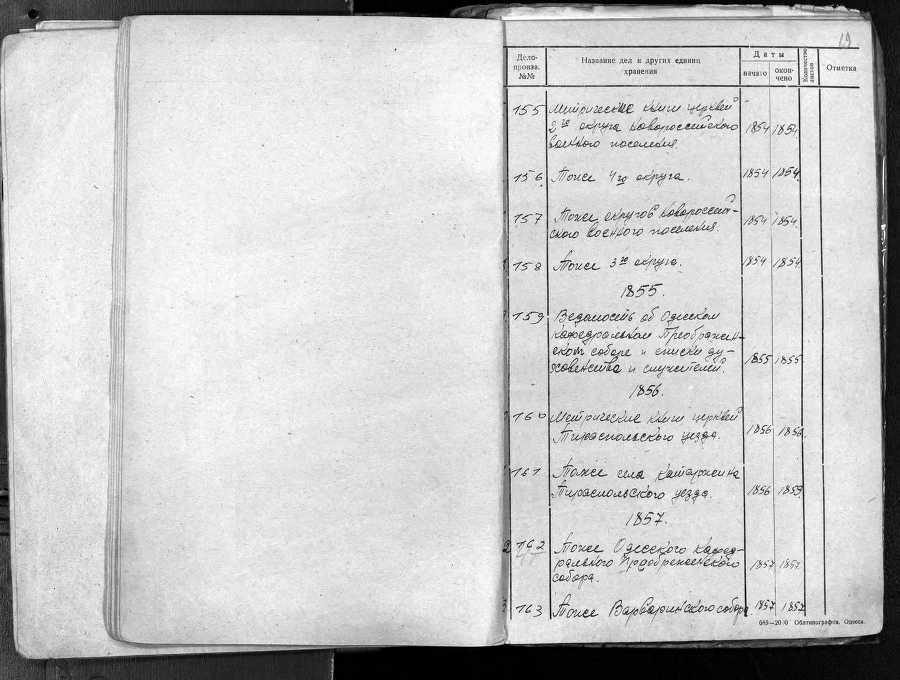 19
Дело-
произв.
№№
Название дел и других единиц
хранения
Даты
начато
окон-
чено
Количество
листов
Отметка
155 Метрические книги церквей
2го округа Новороссийского 1854 1854
военного поселения.
156 Тоже 4го округа. 1854 1854
157 Тоже округов Новороссий-
ского военного поселения. 1854 1854
158 Тоже 3го округа. 1854 1854
1855.
159 Ведомость об Одесском
кафедральном Преображен-
ском соборе и списки ду-
ховенства и служителей. 1855 1855
1856.
160 Метрические книги церквей
Тираспольского уезда. 1856 1856
161 Тоже села Катаржина
Тираспольского уезда. 1856 1859
1857.
162 Тоже Одесского кафед-
рального Преображенского 1857 1857
собора.
163 Тоже Варваринского собора 1857 1857
Облтипография, Одесса.